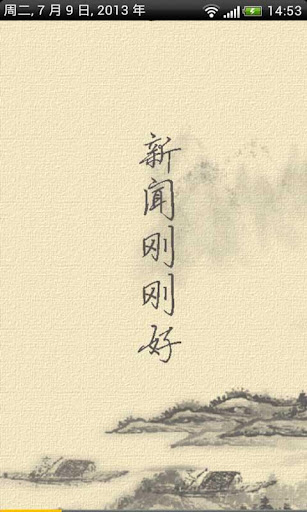 周二, 7 月 9 日, 2013 年 14:53
新闻刚刚好